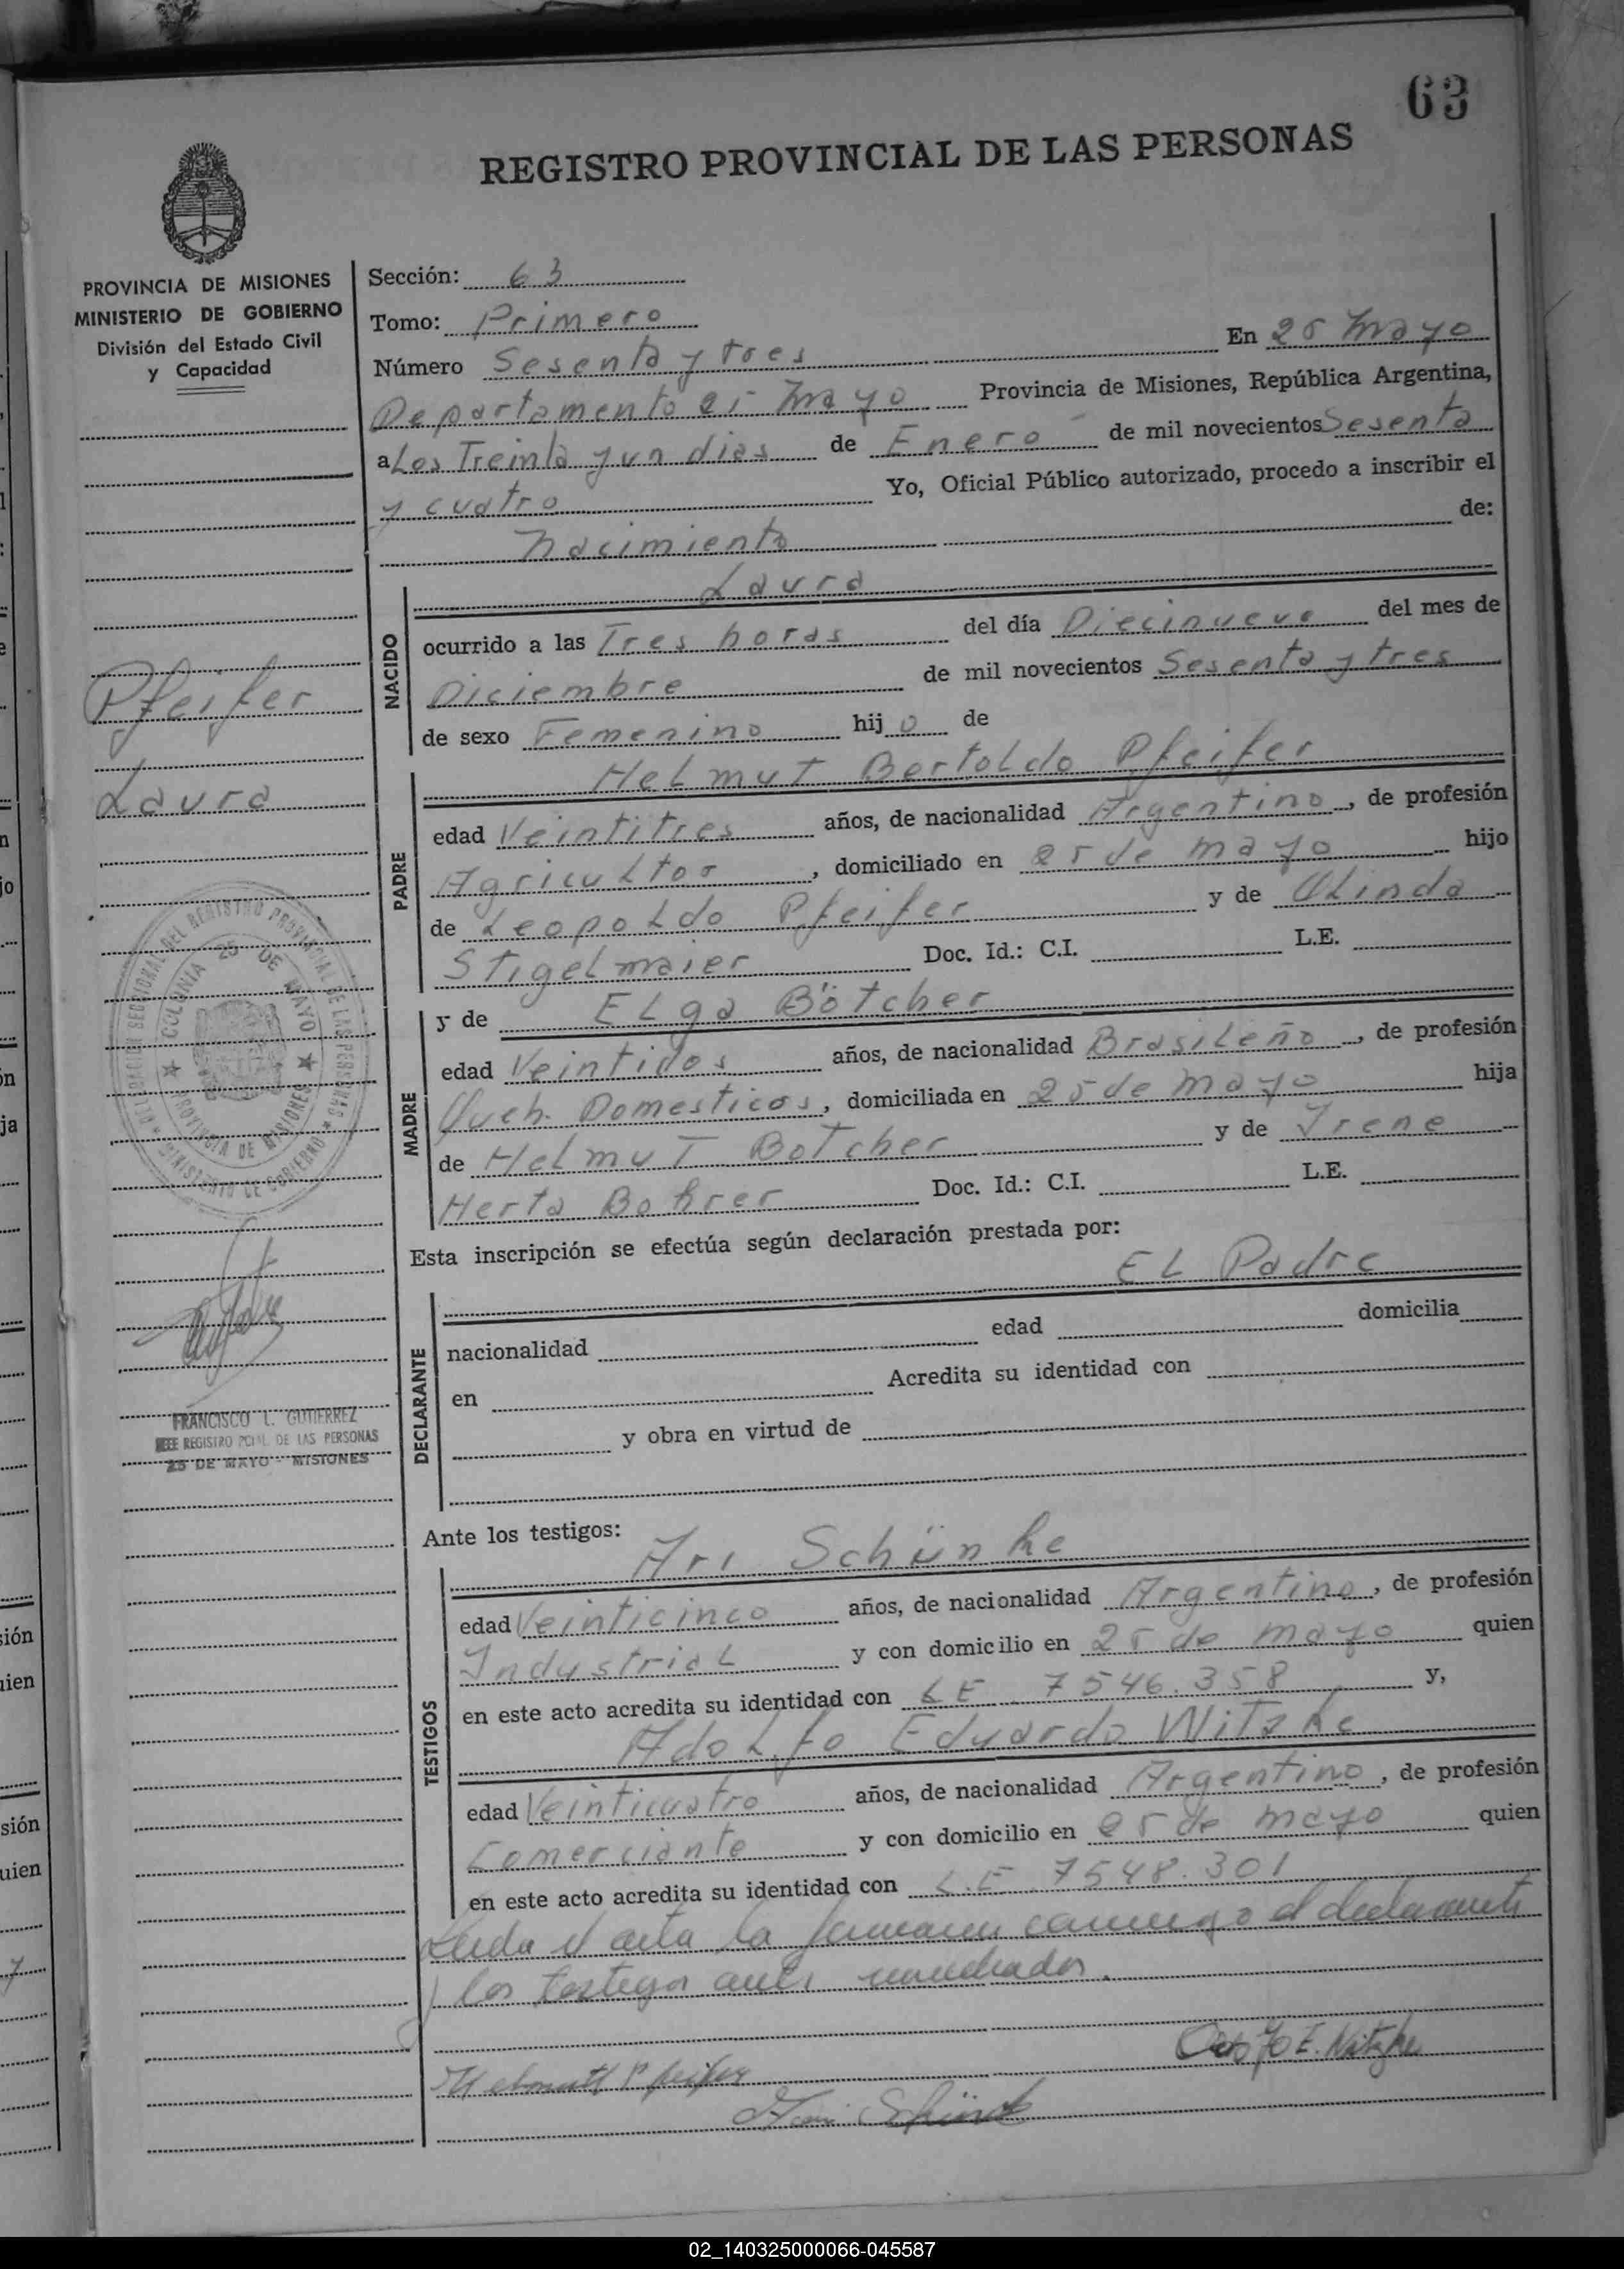 63
REGISTRO PROVINCIAL DE LAS PERSONAS
PROVINCIA DE MISIONES
MINISTERIO DE GOBIERNO
División del Estado Civil
y Capacidad
Sección: 63
Tomo: Primero
Número Sesenta y tres En 25 Mayo
Departamento 25 Mayo Provincia de Misiones, República Argentina,
a Los Treinta y un dias de Enero de mil novecientos Sesenta
y cuatro Yo, Oficial Público autorizado, procedo a inscribir el
Nacimiento de:
Laura
NACIDO
ocurrido a las Tres horas del día Diecinueve del mes de
Diciembre de mil novecientos Sesenta y tres
de sexo Femenino hij a de
Pfeifer
Laura
Helmut Bertoldo Pfeifer
PADRE
edad Veintitres años, de nacionalidad Argentino, de profesión
Agricultor, domiciliado en 25 de mayo hijo
de Leopoldo Pfeifer y de Olinda
Stigelmaier Doc. Id.: C.I. L.E.
y de Elga Bötcher
MADRE
edad Veintidos años, de nacionalidad Brasileña, de profesión
Queh. Domesticos, domiciliada en 25 de mayo hija
de Helmut Botcher y de Irene
Herta Bohrer Doc. Id.: C.I. L.E.
DELEGACION SECCIONAL DEL REGISTRO PROVINCIAL DE LAS PERSONAS
MINISTERIO DE GOBIERNO
COLONIA 25 DE MAYO
PROVINCIA DE MISIONES
Esta inscripción se efectúa según declaración prestada por:
El Padre
DECLARANTE
nacionalidad edad domicilia
en Acredita su identidad con
y obra en virtud de
FRANCISCO L. GUTIERREZ
JEFE REGISTRO PCIAL. DE LAS PERSONAS
25 DE MAYO - MISIONES
Ante los testigos:
Ari Schünke
TESTIGOS
edad Veinticinco años, de nacionalidad Argentino, de profesión
Industrial y con domicilio en 25 de mayo quien
en este acto acredita su identidad con L E 7546.358 y,
Adolfo Eduardo Nitzke
edad Veinticuatro años, de nacionalidad Argentino, de profesión
Comerciante y con domicilio en 25 de mayo quien
en este acto acredita su identidad con L.E 7548.301
Leida el acta la firman conmigo el declarante
y los testigos ante nombrados.
Adolfo E. Nitzke
Helmutt Pfeifer
Ari Schünk
02_140325000066-045587